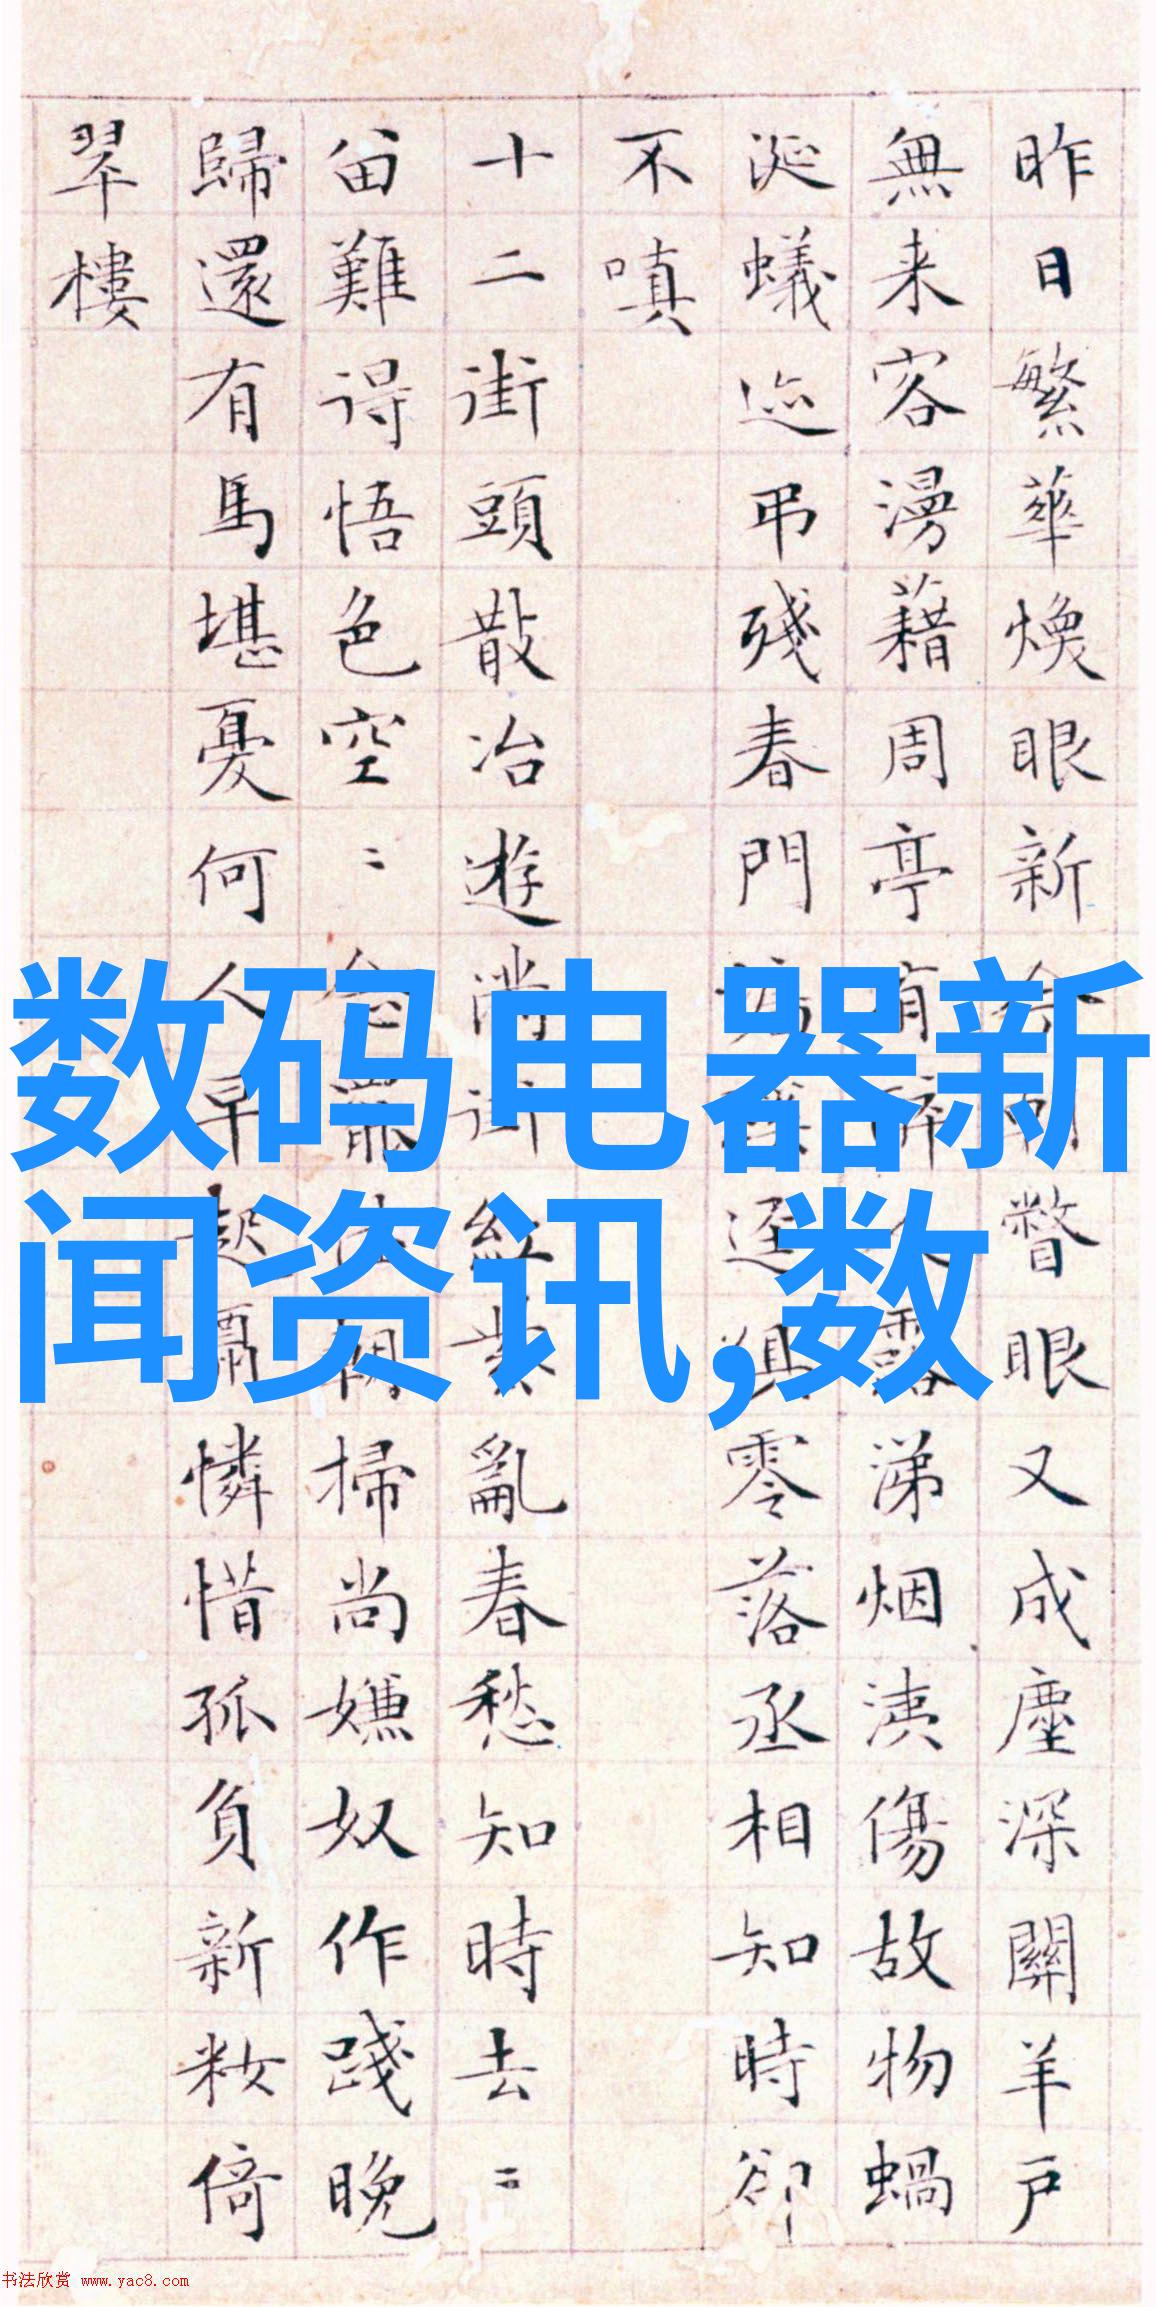 昨日繁華煥眼新
瞥眼又成塵深關羊戶
無来客漫藉周亭有
涕烟洟傷故物蝸
涎蟻迹弔残春門
逕
零落丞相知時卻
不嗔
十二街頭散冶遊滿街紅紫亂春愁知時去〻
留難得悟色空〻
掃尚嫌奴作踐晚
歸還有馬堪憂何人早起
憐惜孤負新粧倚
翠樓
数码电器新
闻资讯,数
书法欣赏 www.yac8.com